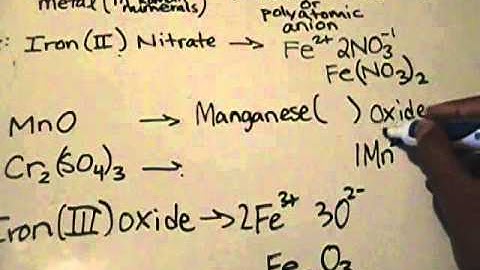 metal (in Roman numerals)
or
polyatomic
anion
: Iron (II) Nitrate → Fe²⁺ 2NO₃⁻¹
Fe(NO₃)₂
MnO → Manganese( ) Oxide
1Mn
Cr₂(SO₄)₃ →
Iron (III) oxide → 2Fe³⁺ 3O²⁻
Fe O₃